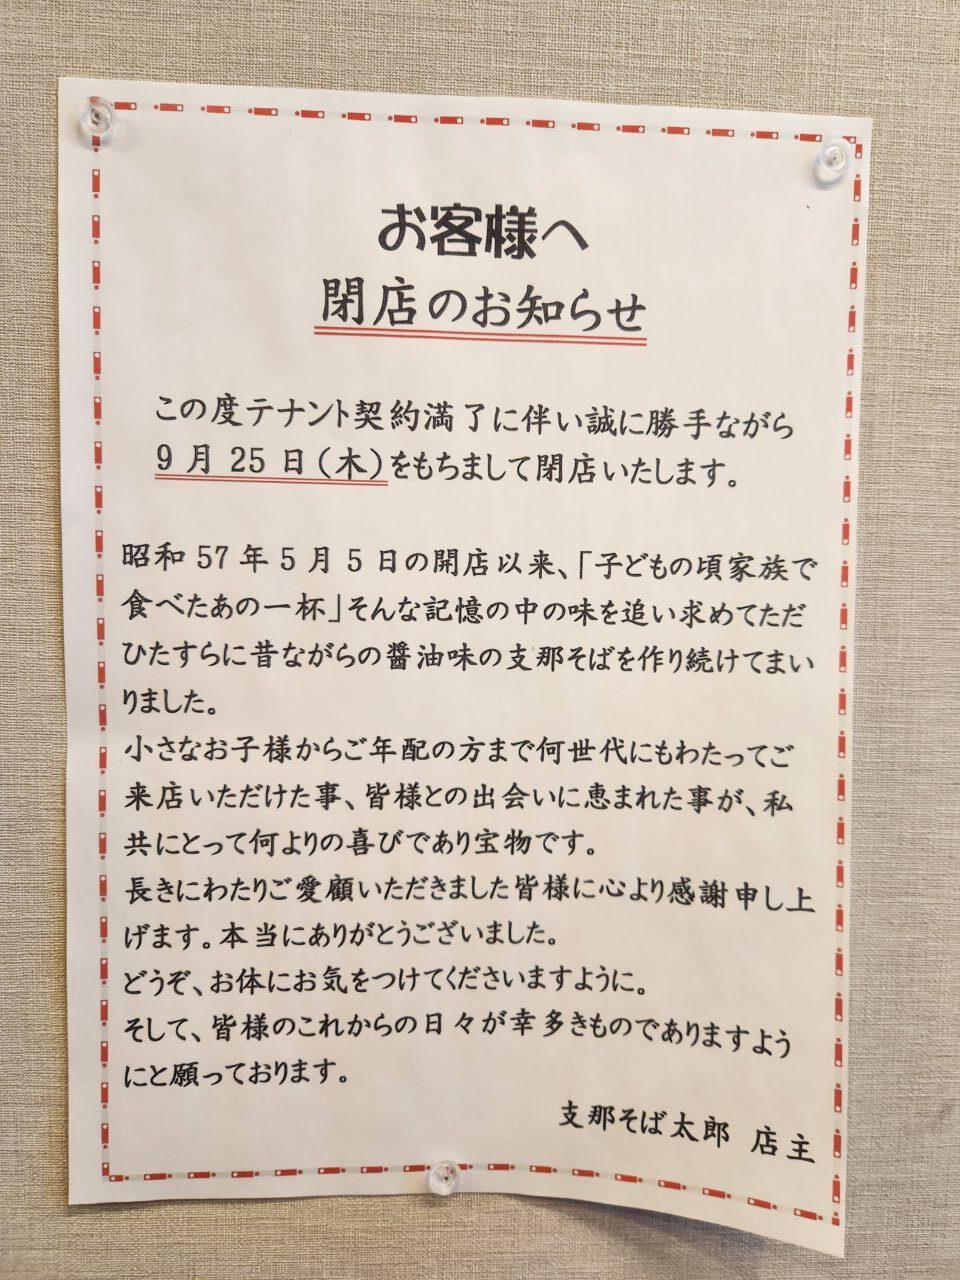 お客様へ
閉店のお知らせ
この度テナント契約満了に伴い誠に勝手ながら
9月25日(木)をもちまして閉店いたします。
昭和57年5月5日の開店以来、「子どもの頃家族で
食べたあの一杯」そんな記憶の中の味を追い求めてただ
ひたすらに昔ながらの醤油味の支那そばを作り続けてまい
りました。
小さなお子様からご年配の方まで何世代にもわたってご
来店いただけた事、皆様との出会いに恵まれた事が、私
共にとって何よりの喜びであり宝物です。
長きにわたりご愛顧いただきました皆様に心より感謝申し上
げます。本当にありがとうございました。
どうぞ、お体にお気をつけてくださいますように。
そして、皆様のこれからの日々が幸多きものでありますよう
にと願っております。
支那そば太郎 店主